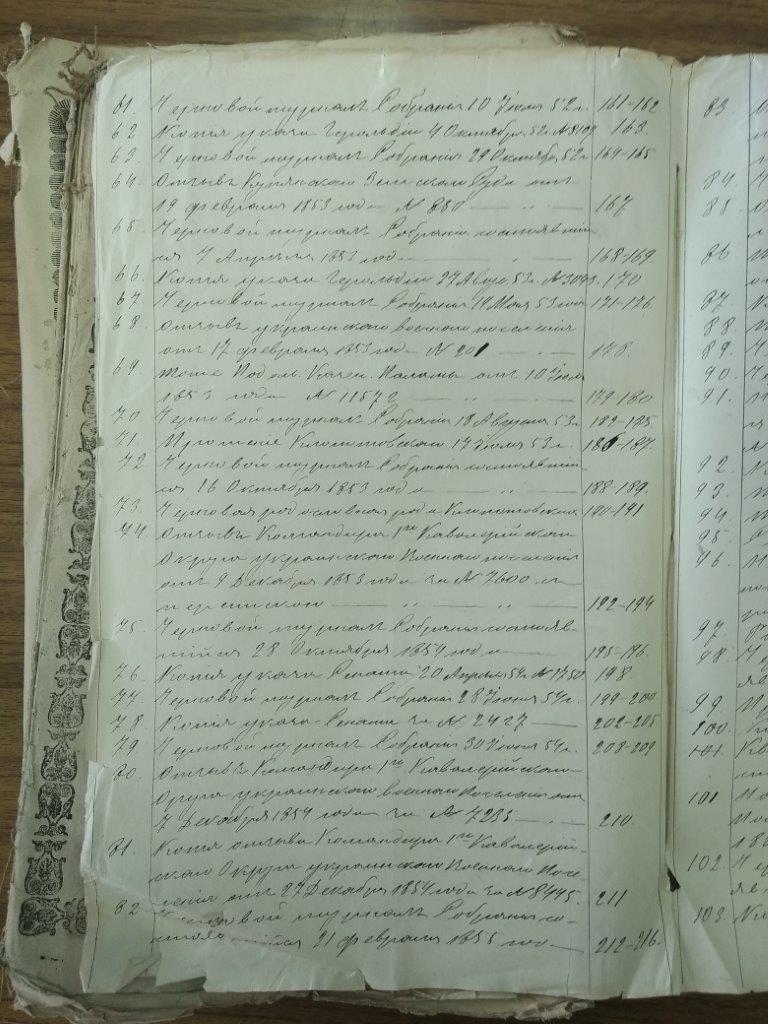 61. Черновой журналъ Собранія 10 Іюля 52 г. 161-162
62. Копія указа Герольдіи 4 Октября 52 г. № 8109 163.
63. Черновой журналъ Собранія 29 Октября 52 г. 164-165
64. Отзывъ Купянскаго Земскаго Суда отъ
19 февраля 1853 года № 850 — „ — 167
65. Черновой журналъ Собранія состоявшій-
ся 7 Апрѣля 1853 года — „ — 168-169
66. Копія указа Герольдіи 27 53 г. № 170
67. Черновой журналъ Собранія 19 Мая 53 года 171-176
68. Отзывъ украинскаго военнаго поселенія
отъ 17 февраля 1853 года № 201 — „ — 178.
69. тоже Подоль. Казен. Палаты отъ 10 Іюля
1853 года № 11572 — „ — 179-180
70. Черновой журналъ Собранія 18 Августа 53 г. 182-185.
71. Прошеніе 17 Іюля 53 г. 186-187.
72. Черновой журналъ Собранія состоявшій-
ся 16 Октября 1853 года — „ — 188-189.
73. Черновая родословная рода 190-191
74. Отзывъ Командира 1го Кавалерійскаго
Округа украинскаго Военнаго поселенія
отъ 9 Декабря 1853 года за № 7600 съ
перепискою — „ — „ — 192-194
75. Черновой журналъ Собранія состояв-
шійся 28 Октября 1854 года — 195-196.
76. Копія указа Сената 20 Апрѣля 54 г. № 1750 198.
77. Черновой журналъ Собранія 28 Іюня 54 г. 199-200
78. Копія указа Сената за № 2427 — 202-205
79. Черновой журналъ Собранія 30 Іюня 54 г. 208-209
80. Отзывъ Командира 1го Кавалерійскаго
Округа украинскаго военнаго поселенія отъ
7 Декабря 1854 года за № 7235 — 210.
81. Копія отзыва Командира 1го Кавалерій-
скаго Округа украинскаго Военнаго посе-
ленія отъ 27 Декабря 1854 года за № 8445. 211
82. Черновой журналъ Собранія со-
стоявшійся 21 февраля 1855 года — 212-216.
83
84
85
86
87.
88.
89.
90.
91.
92.
93.
94.
95.
96.
97.
98.
99.
100.
101.
101
102.
103.